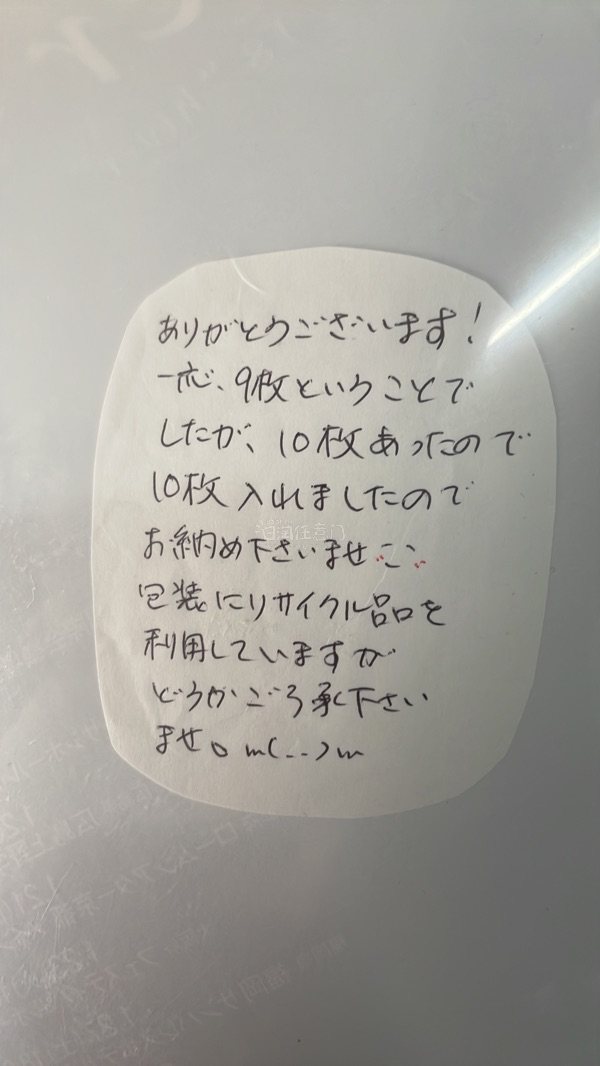 ありがとうございます!
一応、9枚ということで
したが、10枚あったので
10枚入れましたので
お納め下さいませ
包装にリサイクル品を
利用していますが
どうかご了承下さい
ませ。m(..)m
任意门